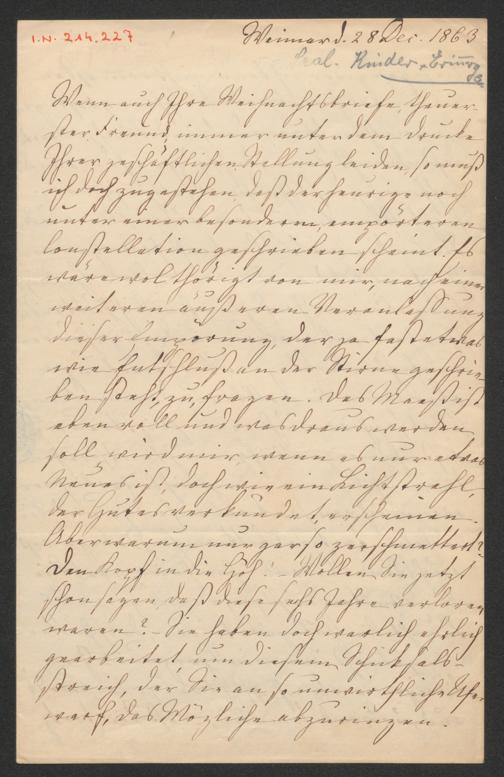 I.N. 214.227
Weimar d. 28 Dec. 1863
Kinder
Wenn auch Ihre Weihnachtsbriefe, theuer-
ster Freund immer unter dem Drucke
Ihrer geschäftlichen Stellung leiden, so muß
ich doch zugestehen, daß der heurige noch
unter einer besonderen, empörteren
Constellation geschrieben scheint. Es
wäre wol thörigt von mir, nach einer
weiteren äußeren Veranlassung
dieser Empörung, der ja fast etwas
wie Entschluß an der Stirne geschrie-
ben steht, zu fragen. Das Maaß ist
eben voll und was draus werden
soll wird mir, wenn es nur etwas
Neues ist, doch wie ein Lichtstrahl,
der Gutes verkündet, erscheinen.
Aber warum nur gar so zerschmettert?
Den Kopf in die Höh! – Wollen Sie jetzt
schon sagen daß diese sechs Jahre verloren
waren? Sie haben doch warlich ehrlich
gearbeitet um diesem Schicksals-
streich, der Sie an so unwirthliche
warf, das Mögliche abzuringen.